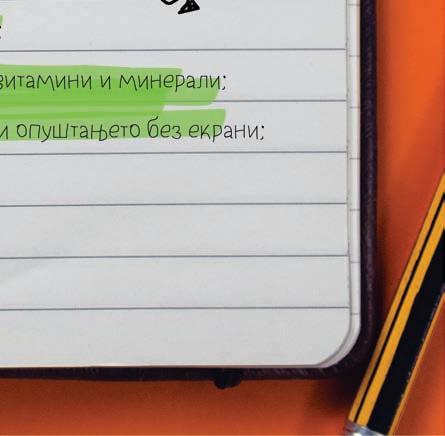 витамини и минерали;
и опуштањето без екрани;